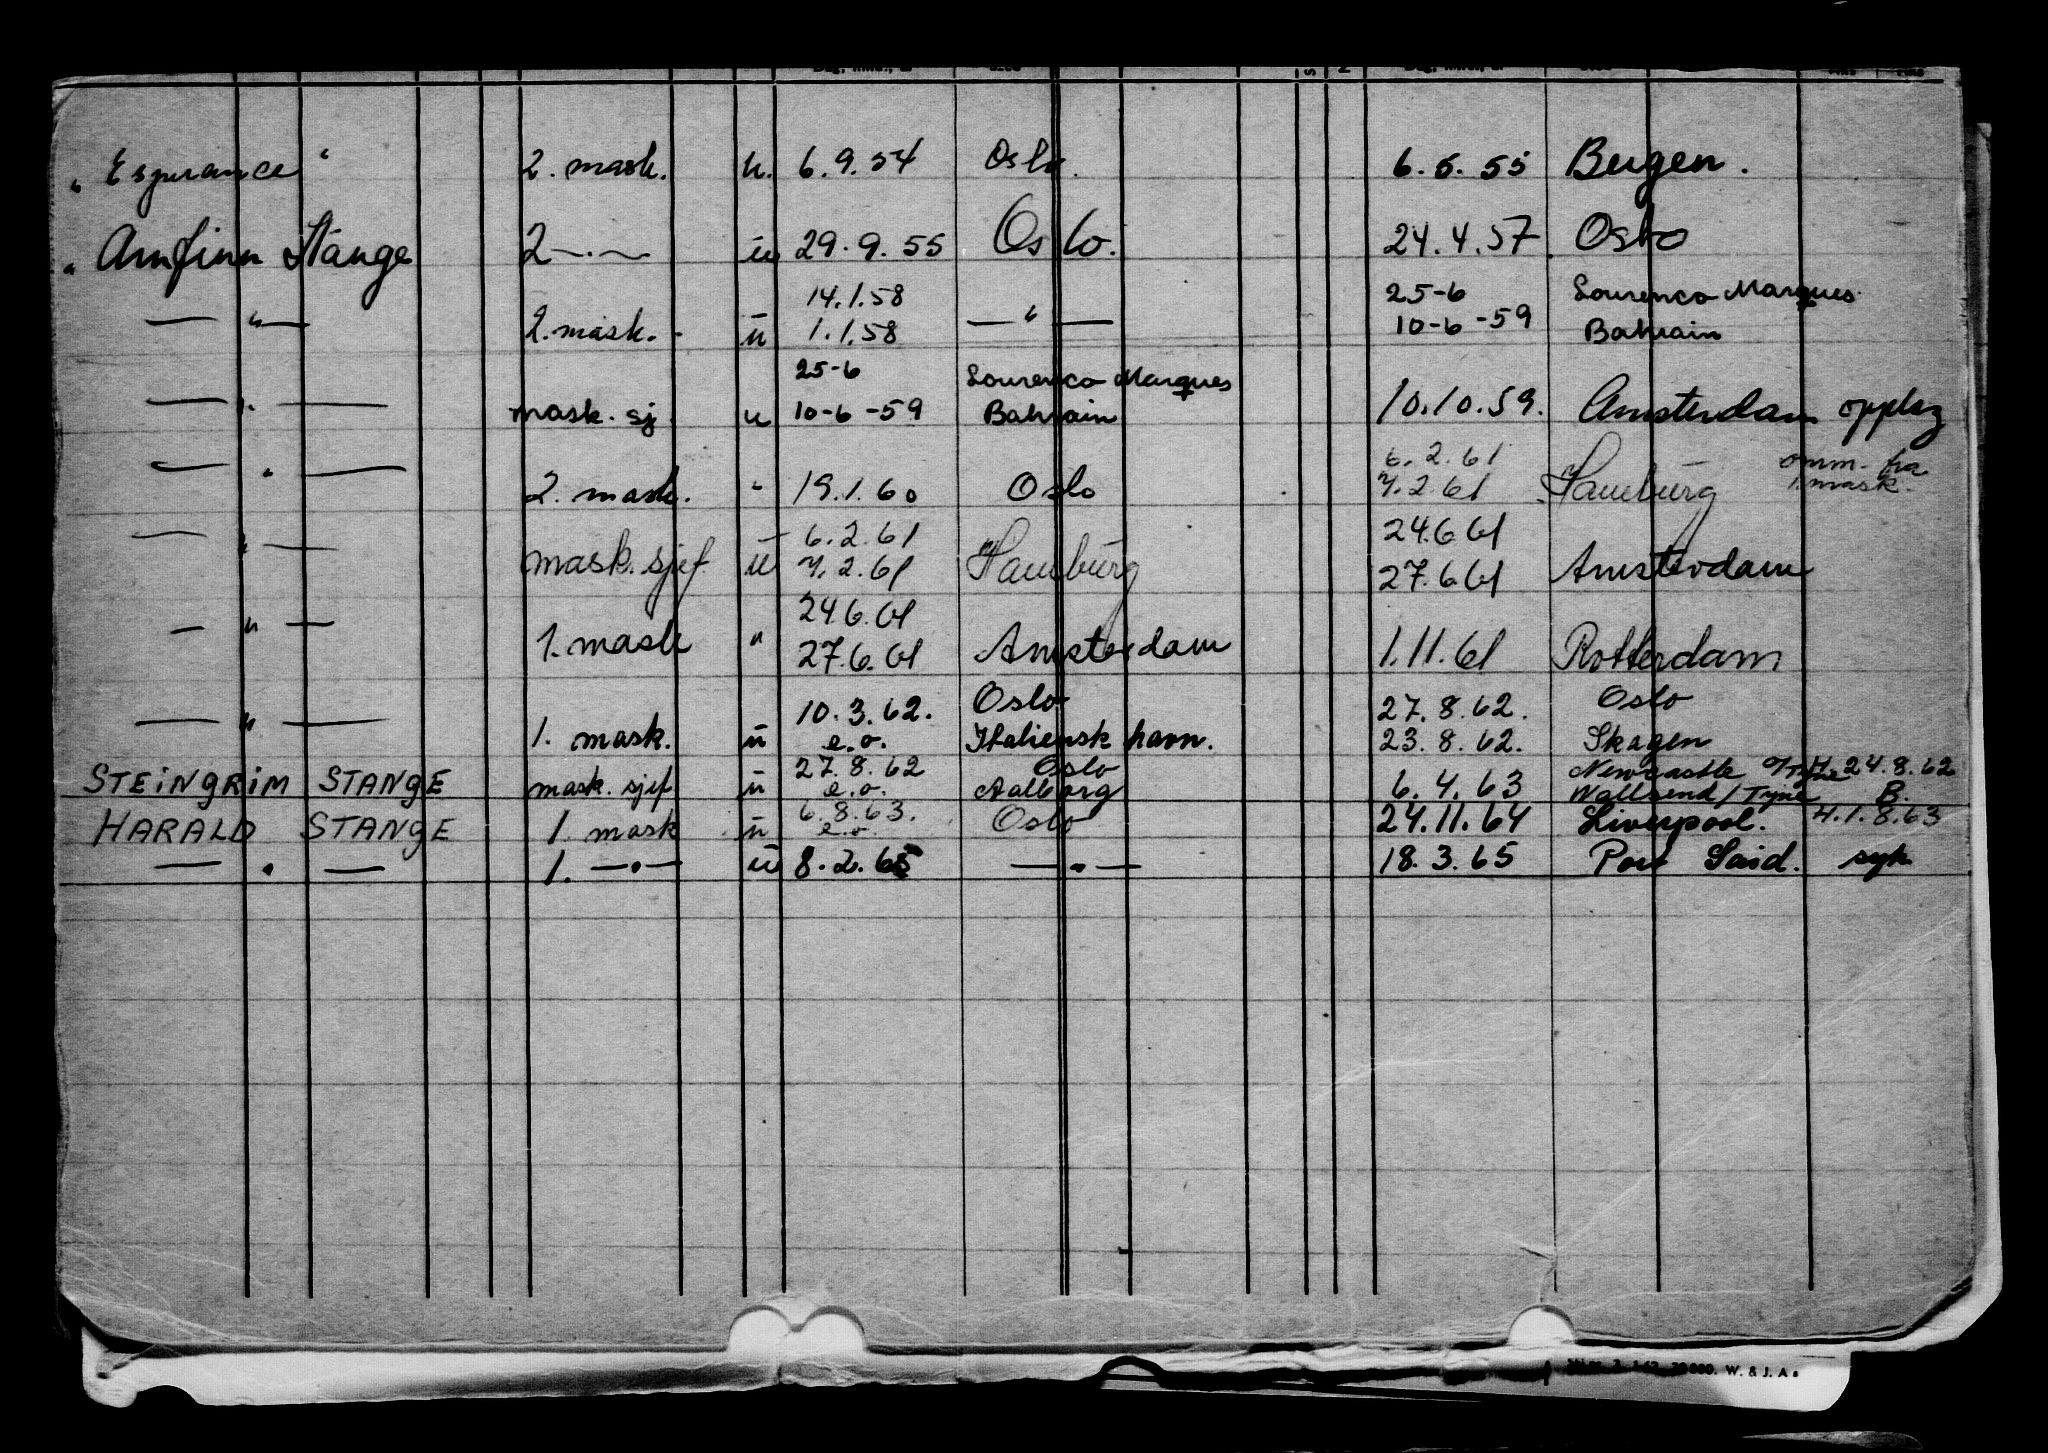 " Esperance " 2. mask. u. 6.9.54 Oslo. 6.5.55 Bergen.
" Arnfinn Stange 2 —.— u 29.9.55 Oslo. 24.4.57 Oslo
14.1.58 25-6 Lourenco Marques.
— " — 2. mask. - u 1.1.58 — " — 10-6-59 Bahrain
25-6 Lourenco Marques
— " — mask. sj. u 10-6-59 Bahrain 10.10.59. Amsterdam
6.2.61 omm. fra
— " — 2. mask. " 19.1.60 Oslo 7.2.61 Hamburg 1. mask.
6.2.61 24.6.61
— " — mask. sjef u 7.2.61 Hamburg 27.6.61 Amsterdam
24.6.61
— " — 1. mask " 27.6.61 Amsterdam 1.11.61 Rotterdam
10.3.62. Oslo 27.8.62. Oslo
— " — 1. mask. u e.o. Italiensk havn. 23.8.62. Skagen
27.8.62 Oslo Newcastle 24.8.62
STEINGRIM STANGE mask. sjef u e.o. Aalborg 6.4.63 Wallsend/Tyne B.
6.8.63.
HARALD STANGE 1. mask u e.o. Oslo 24.11.64 Liverpool. H.1.8.63
— " — 1. —"— u 8.2.65 — " — 18.3.65 Port Said. syk
000. W. & J. A.